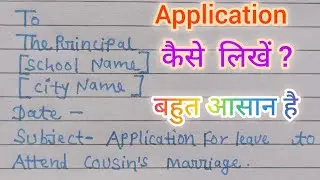 Application
कैसे लिखें ?
बहुत आसान है
To
The Principal
[School Name]
[City Name]
Date -
Subject- Application For leave to
Attend Cousin's Marriage.